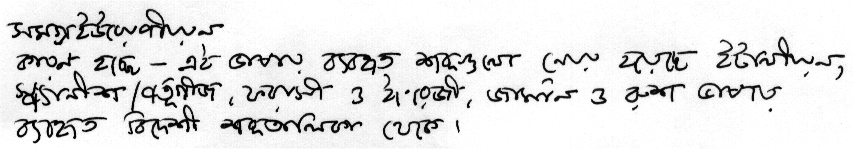 সমগ্র ইউরোপীয়ান
কারন হচ্ছে - এই ভাষায় ব্যবহৃত শব্দগুলো নেয়া হয়েছে ইটালীয়ান,
স্প্যানীশ/পর্তুগীজ, ফরাসী ও ইংরেজী, জার্মান ও রুশ ভাষায়
ব্যবহৃত বিদেশী শব্দতালিকা থেকে।